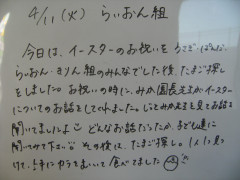 4/11 (火) らいおん組
今日は、イースターのお祝いをうさぎ・ぱんだ・
らいおん・きりん組のみんなでした後、たまご探し
をしました。お祝いの時に、みか園長先生がイースター
についてのお話をしてくれました。じっとみか先生を見てお話を
聞いてましたよ どんなお話だったか、子ども達に
聞いてみて下さい その後は、たまご探し。1人1つ見つ
けて、上手にカラをまいて食べてました